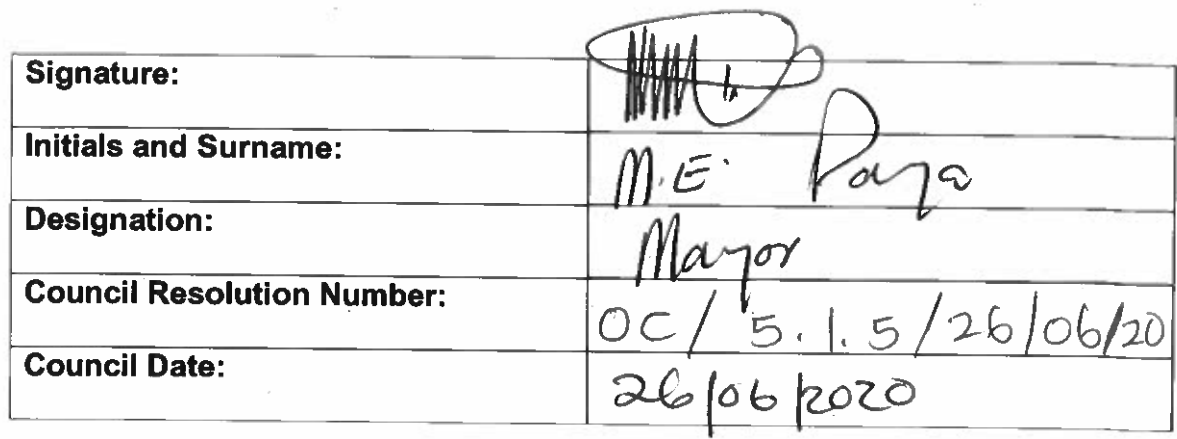 Signature:
Initials and Surname: M.E. Paya
Designation: Mayor
Council Resolution Number: OC/ 5.1.5/26/06/20
Council Date: 26/06/2020